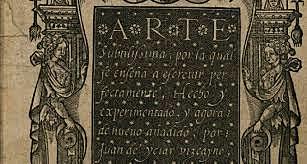 ARTE
Subtilissima, por la qual
se enseña a escreuir per
fectamente. Hecho y
experimentado, y agora
de nueuo añadido, por
Juan de yciar vizcayno